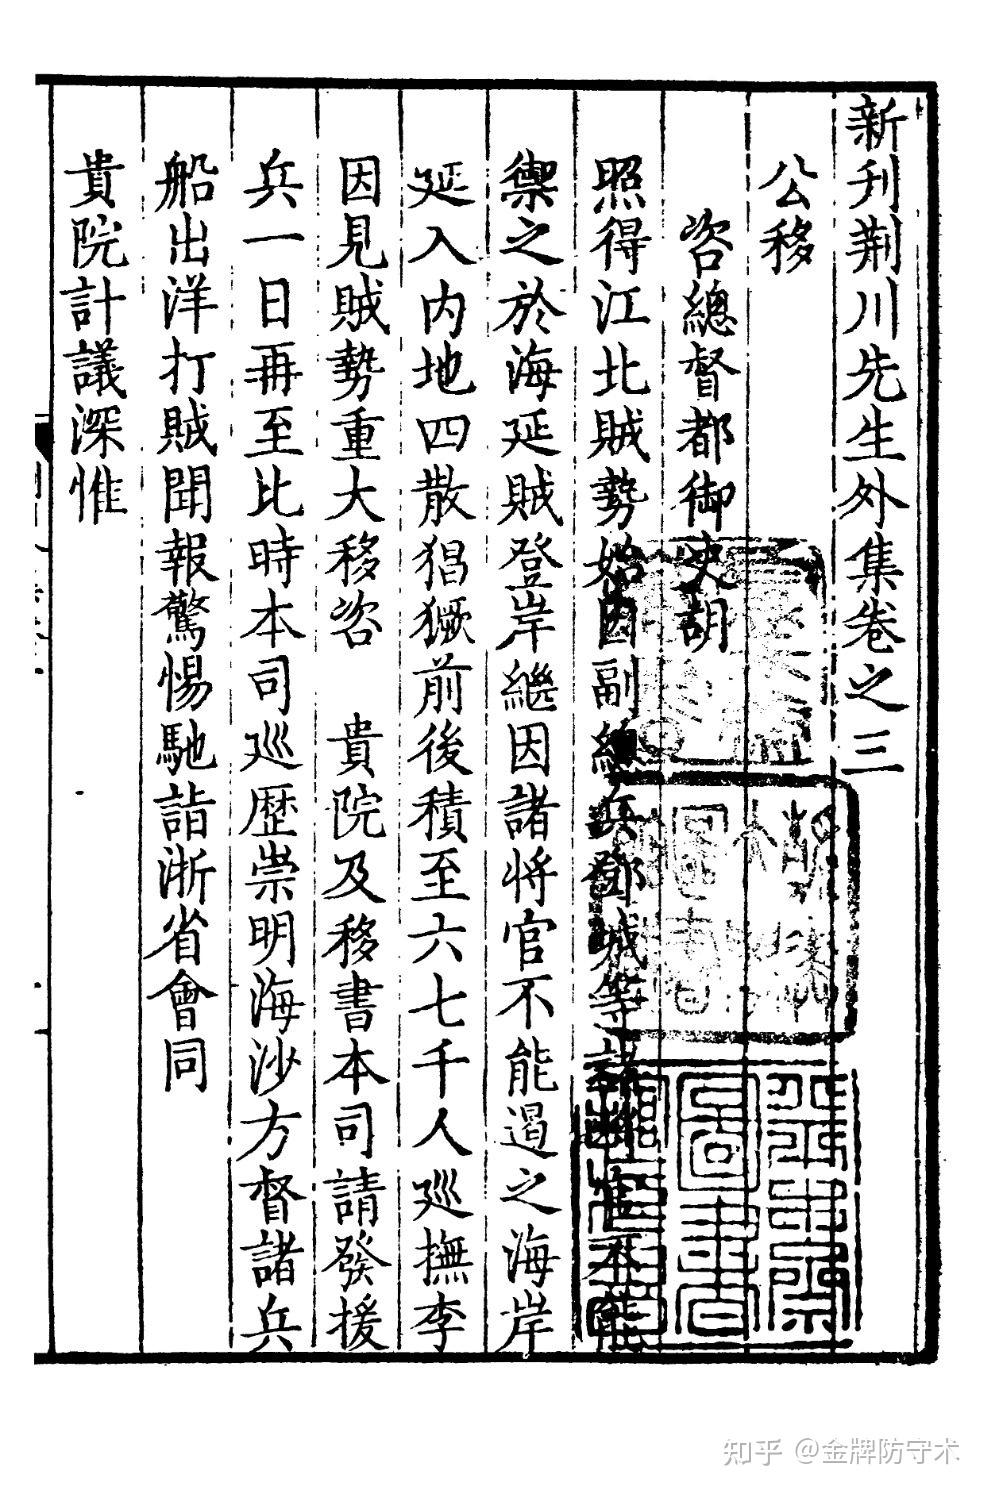 新刋荆川先生外集卷之三
公移
咨總督都御史胡
照得江北賊勢始因副總兵鄧城等諸將官不能
禦之於海延賊登岸繼因諸將官不能遏之海岸
延入内地四散猖獗前後積至六七千人廵撫李
因見賊勢重大移咨 貴院及移書本司請發援
兵一日再至比時本司廵歷崇明海沙方督諸兵
船出洋打賊聞報驚惕馳詣浙省會同
貴院計議深惟
知乎 @金牌防守术